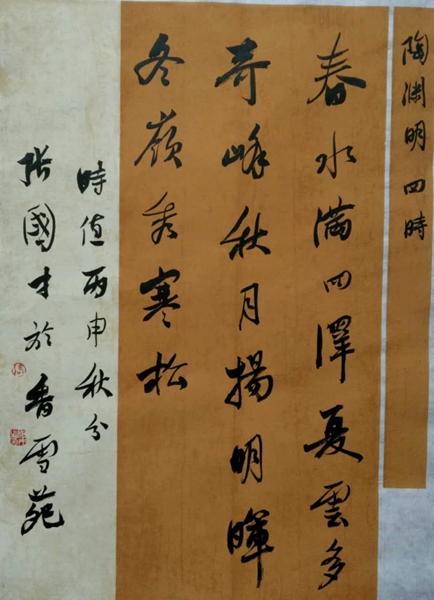 陶渊明四時
春水滿四澤夏雲多
奇峰秋月揚明暉
冬嶺秀寒松
時值丙申秋分
張國才於香雪苑